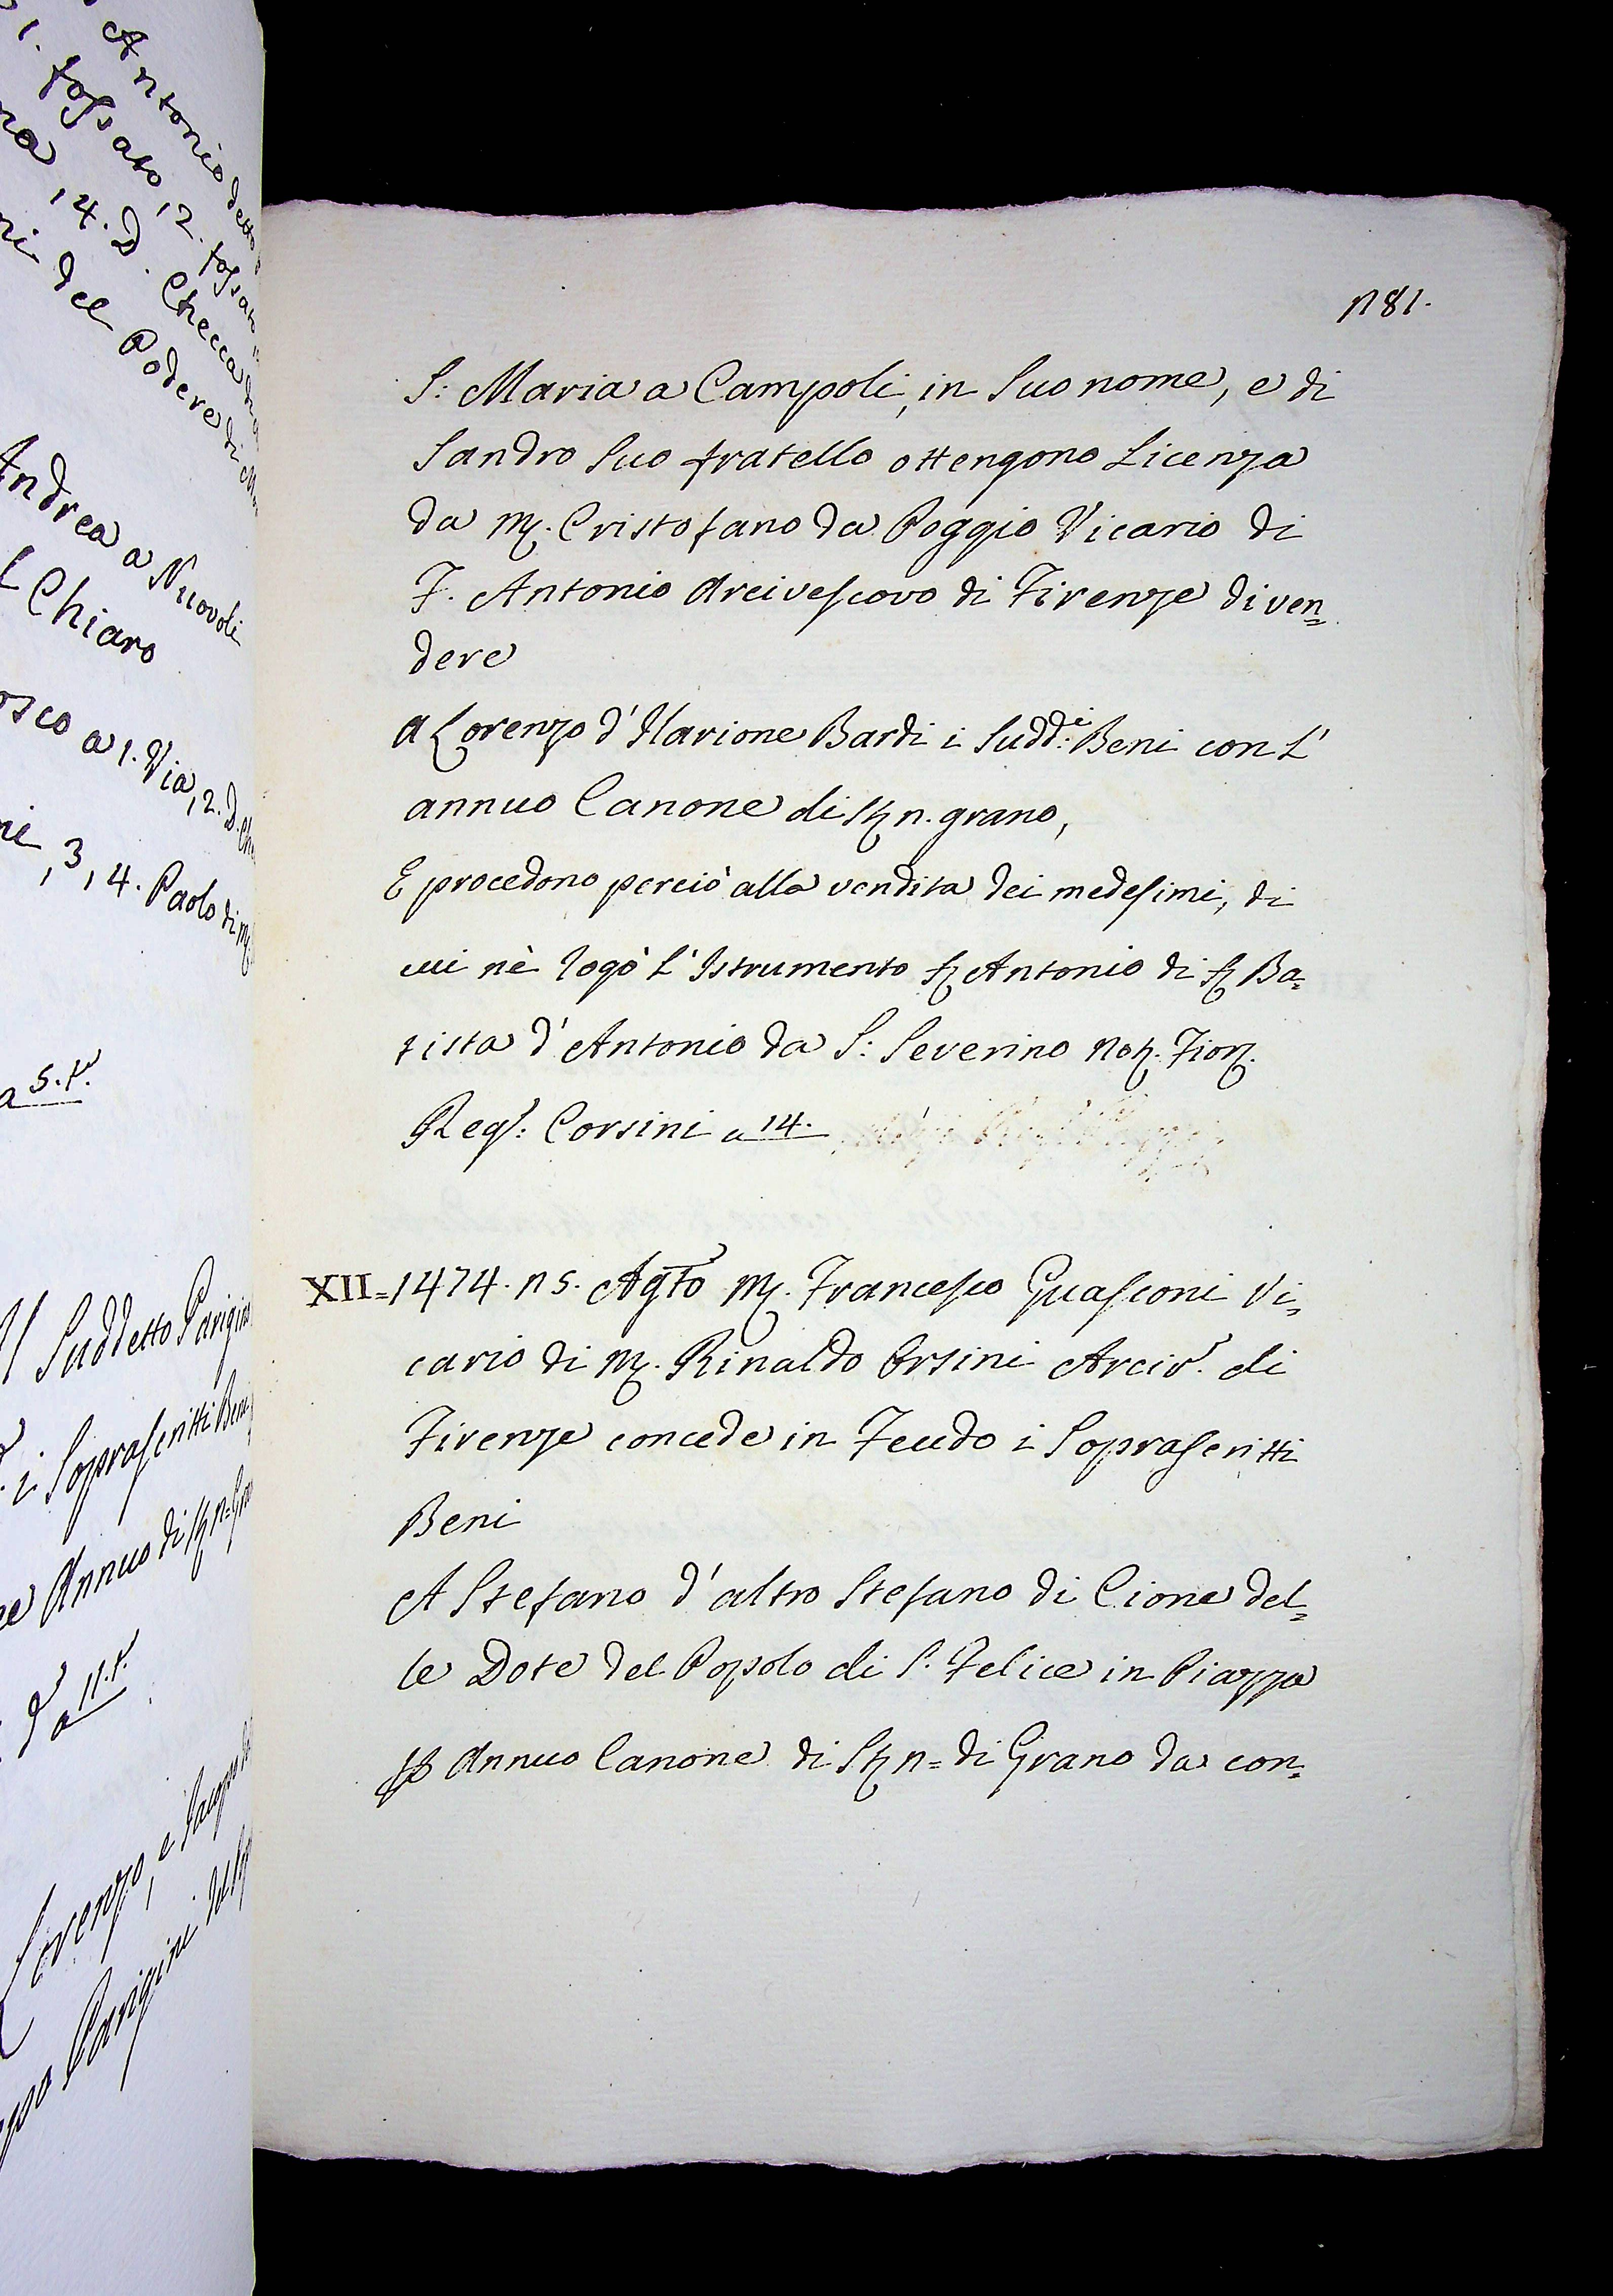 Antonio detto
1. fossato, 2. fossato
na, 4. D. Checca
ni del Podere di
Andrea a Nuovoli
Chiaro
osco a 1. Via, 2. D.
ni, 3, 4. Paolo di M.
a 5. t.
Il Suddetto Parigino
i Soprascritti Beni
Annuo di
a 11. t.
Lorenzo, e Jacopo
Parigini del
181.
S: Maria a Campoli, in Suo nome, e di
Sandro Suo fratello ottengono Licenza
da M. Cristofano da Poggio Vicario di
F. Antonio Arcivescovo di Firenze di ven=
dere
A Lorenzo d'Ilarione Bardi i Sudd:i Beni con l'
annuo Canone di St. 11. grano,
E procedono perciò alla vendita dei medesimi, di
cui nè rogò l'Istrumento S. Antonio di S. Ba=
tista d'Antonio da S: Severino Not. Fior.
Reg: Corsini a 14.
XII= 1474. 15. Agto M. Francesco Guasconi Vi=
cario di M. Rinaldo Orsini Arciv. di
Firenze concede in Feudo i Soprascritti
Beni
A Stefano d'altro Stefano di Cione del=
le Dote del Popolo di S. Felice in Piazza
p Annuo Canone di St. 11= di Grano da con=